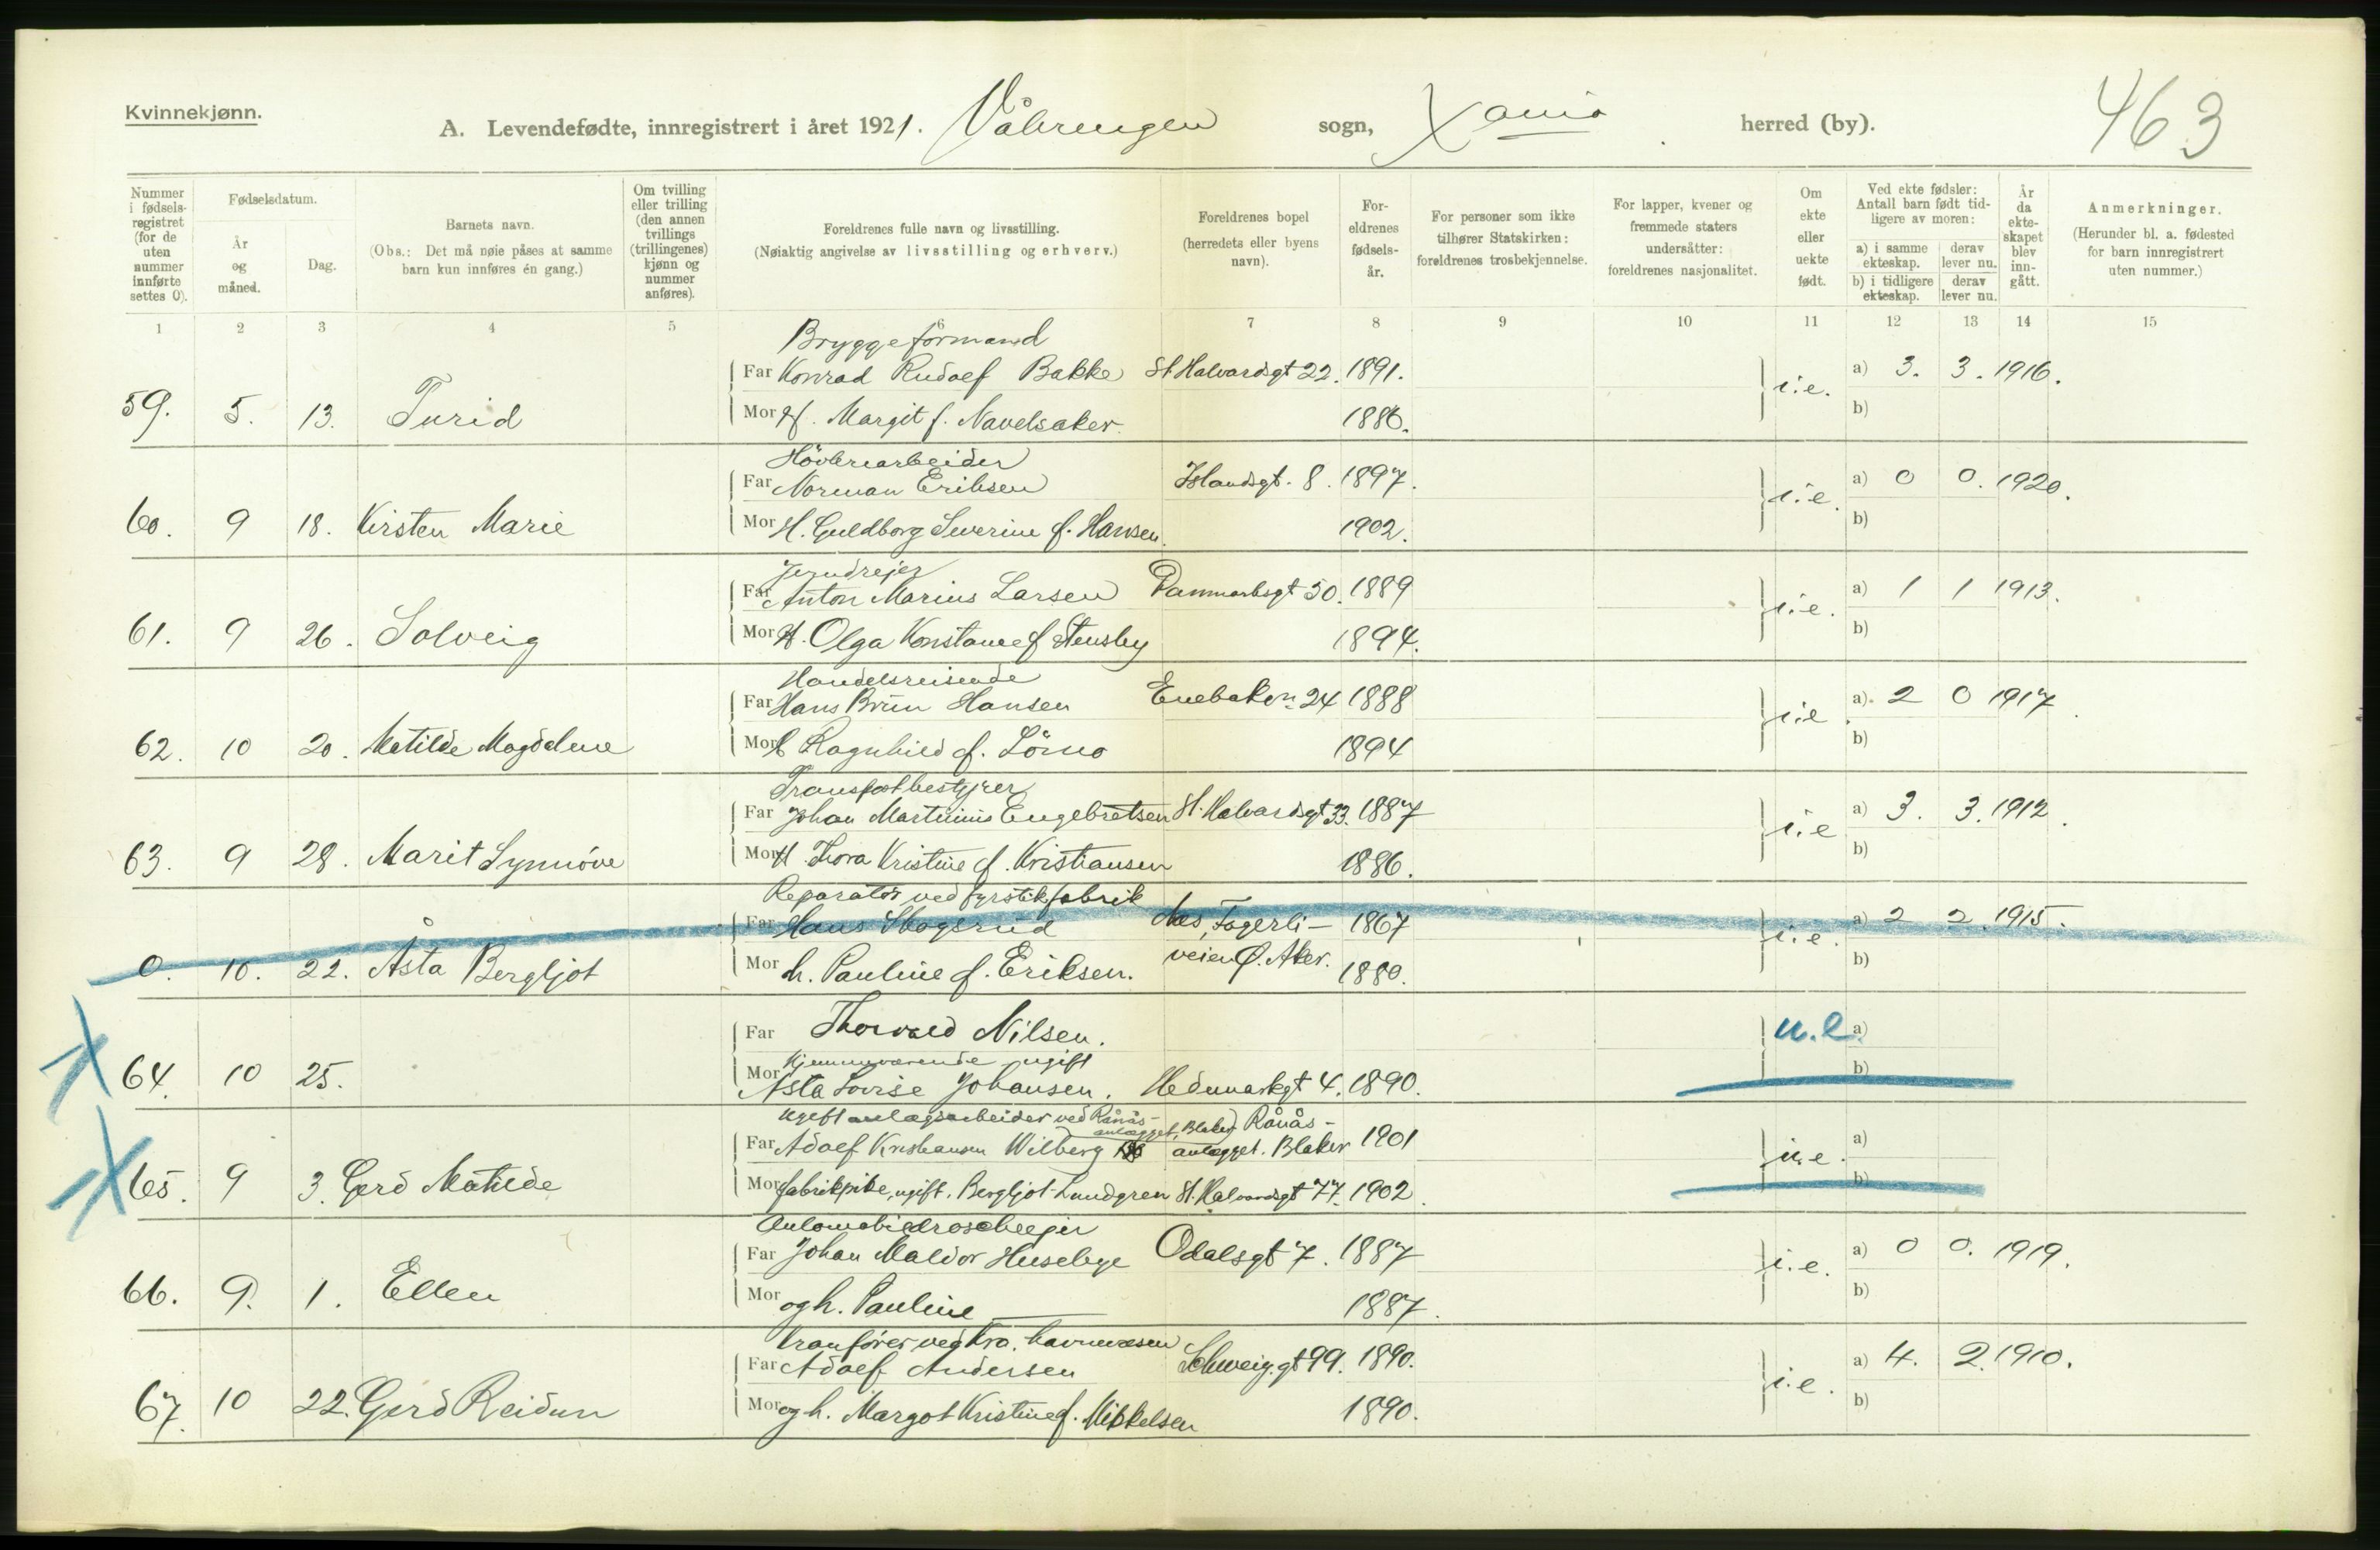 Kvinnekjønn.
A. Levendefødte, innregistrert i året 1921. Vålerengen sogn, Xania herred (by).
463
Nummer i fødsels-registret (for de uten nummer innførte settes 0).
Fødselsdatum.
År og måned.
Dag.
Barnets navn.
(Obs.: Det må nøie påses at samme barn kun innføres én gang.)
Om tvilling eller trilling (den annen tvillings (trillingenes) kjønn og nummer anføres).
Foreldrenes fulle navn og livsstilling.
(Nøiaktig angivelse av livsstilling og erhverv.)
Foreldrenes bopel (herredets eller byens navn).
For-eldrenes fødsels-år.
For personer som ikke tilhører Statskirken: foreldrenes trosbekjennelse.
For lapper, kvener og fremmede staters undersåtter: foreldrenes nasjonalitet.
Om ekte eller uekte født.
Ved ekte fødsler: Antall barn født tid-ligere av moren:
a) i samme ekteskap. derav lever nu.
b) i tidligere ekteskap. derav lever nu.
År da ekte-skapet blev inn-gått.
Anmerkninger.
(Herunder bl. a. fødested for barn innregistrert uten nummer.)
1 2 3 4 5 6 7 8 9 10 11 12 13 14 15
Bryggeformand
Far Konrad Rudolf Bakke St Halvardsgt 22. 1891. a) 3. 3. 1916.
59. 5. 13. Turid Mor H. Margit f. Navelsaker. 1886. i.e. b)
Høvleriarbeider
Far Norman Eriksen Islandsgt. 8. 1897. a) 0 0. 1920.
60. 9 18. Kirsten Marie Mor H. Guldborg Severine f. Hansen. 1902. i.e. b)
Jerndrejer
Far Anton Marius Larsen Danmarksgt 50. 1889 a) 1 1 1913.
61. 9 26. Solveig Mor H. Olga Konstance f. Stensby 1894. i.e. b)
Handelsreisende
Far Hans Brun Hansen Enebakv. 24 1888 a). 2 0 1917.
62. 10 20. Matilde Magdalene Mor H Ragnhild f. Lörno 1894 i.e. b)
Transportbestyrer
Far Johan Martinius Engebretsen St. Halvardsgt 33. 1887 a) 3. 3. 1912.
63. 9 28. Marit Synnöve Mor H. Thora Kristine f. Kristiansen 1886. i.e b)
Reparatör ved fyrstikfabrik
Far Hans Skogsrud Nes, Fagerli- 1867 a) 2 2. 1915.
0. 10. 22. Åsta Bergljot Mor h. Pauline f. Eriksen. veien Ø. Aker. 1880. i.e. b)
Far Thorvald Nilsen. u.e. a)
Hjemmeværende ugift
64. 10 25. Mor Asta Lovise Johansen. Hedmarksgt 4. 1890. b)
ugift anlægsarbeider ved Rånås-anlægget, Blaker Rånås-
Far Adolf Kristiansen Wilberg anlægget. Blaker 1901 u.e. a)
65. 9 3. Gerd Matilde Mor fabrikpike, ugift. Bergljot Lundgren St. Halvardsgt 77. 1902. b)
Automobildroscheeier
Far Johan Maldor Huseby Odalsgt 7. 1887 a) 0 0. 1919.
66. 9. 1. Ellen Mor og h. Pauline 1887. i.e. b)
Kranfører ved Kra. havnevæsen
Far Adolf Andersen Schweig.gt 99. 1890. a) 4. 2. 1910.
67. 10 22. Gerd Reidun Mor og h. Margot Kristine f. Mikkelsen 1890. i.e. b)